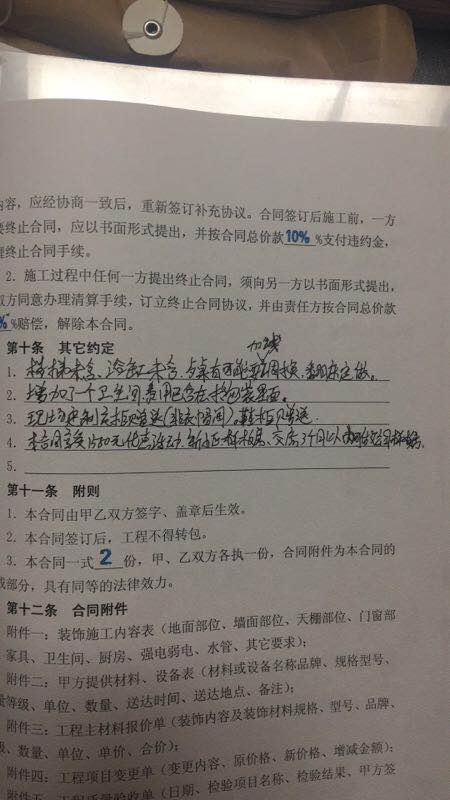 内容，应经协商一致后，重新签订补充协议。合同签订后施工前，一方
要终止合同，应以书面形式提出，并按合同总价款10%%支付违约金，
理终止合同手续。
2. 施工过程中任何一方提出终止合同，须向另一方以书面形式提出，
双方同意办理清算手续，订立终止合同协议，并由责任方按合同总价款
%%赔偿，解除本合同。
第十条 其它约定
1.
2. 增加了一个卫生间，费用已含在
3.
4. 本合同
5.
第十一条 附则
1. 本合同由甲乙双方签字、盖章后生效。
2. 本合同签订后，工程不得转包。
3. 本合同一式2份，甲、乙双方各执一份，合同附件为本合同的
成部分，具有同等的法律效力。
第十二条 合同附件
附件一：装饰施工内容表（地面部位、墙面部位、天棚部位、门窗部
家具、卫生间、厨房、强电弱电、水管、其它要求）；
附件二：甲方提供材料、设备表（材料或设备名称品牌、规格型号、
量等级、单位、数量、送达时间、送达地点、备注）；
附件三：工程主材料报价单（装饰内容及装饰材料规格、型号、品牌、
级、数量、单位、单价、合价）；
附件四：工程项目变更单（变更内容、原价格、新价格、增减金额）；
附件五：工程质量验收单（日期、检验项目名称、检验结果、甲方签